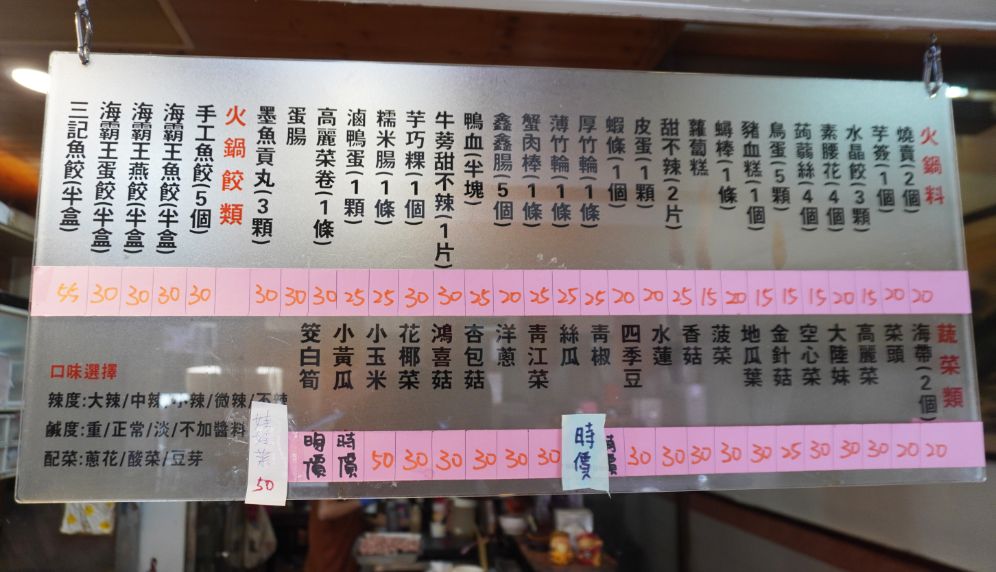 火鍋料
燒賣(2個)
芋簽(1個)
水晶餃(3顆)
素腰花(4個)
蒟蒻絲(4個)
鳥蛋(5顆)
豬血糕(1個)
蟳棒(1條)
蘿蔔糕
甜不辣(2片)
皮蛋(1顆)
蝦條(1個)
厚竹輪(1條)
薄竹輪(1條)
蟹肉棒(1條)
鑫鑫腸(5個)
鴨血(半塊)
牛蒡甜不辣(1片)
芋巧粿(1個)
糯米腸(1條)
滷鴨蛋(1顆)
高麗菜卷(1條)
蛋腸
墨魚貢丸(3顆)
火鍋餃類
手工魚餃(5個)
海霸王魚餃(半盒)
海霸王燕餃(半盒)
海霸王蛋餃(半盒)
三記魚餃(半盒)
55 30 30 30 30 30 30 30 25 25 30 30 25 20 25 25 25 20 20 25 15 20 15 15 15 20 15 20 20
蔬菜類
海帶(2個)
菜頭
高麗菜
大陸妹
空心菜
金針菇
地瓜葉
菠菜
香菇
水蓮
四季豆
青椒
絲瓜
青江菜
洋蔥
杏包菇
鴻喜菇
花椰菜
小玉米
小黃瓜
筊白筍
時價 時價 50 30 30 30 30 30 時價 時價 30 30 30 30 30 25 30 30 30 20 20
口味選擇
辣度:大辣/中辣/小辣/微辣/不辣
鹹度:重/正常/淡/不加醬料
配菜:蔥花/酸菜/豆芽
娃娃菜
50